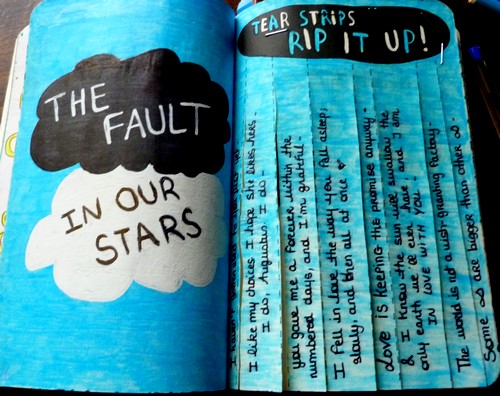 THE
FAULT
IN OUR
STARS
TEAR STRIPS
RIP IT UP!
I like my choices I hope she likes hers.
I do, Augustus. I do -
you gave me a forever within the
numbered days, and I'm grateful -
I fell in love the way you fall asleep;
slowly, and then all at once ♥
Love is keeping the promise anyway -
& I know the sun will swallow the
only earth we'll ever have, and I am
IN LOVE WITH YOU
The world is not a wish granting factory -
Some ∞ are bigger than other ∞.